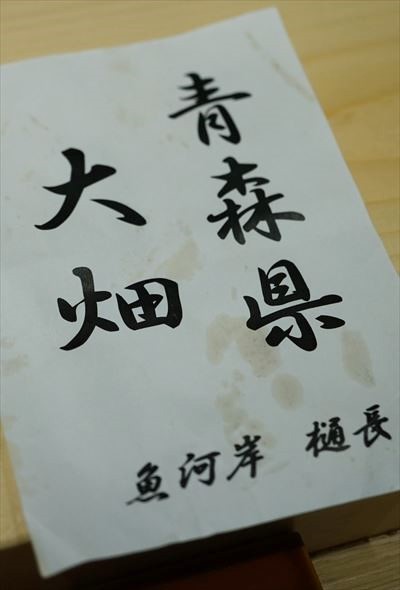 青森県
大畑
魚河岸 樋長